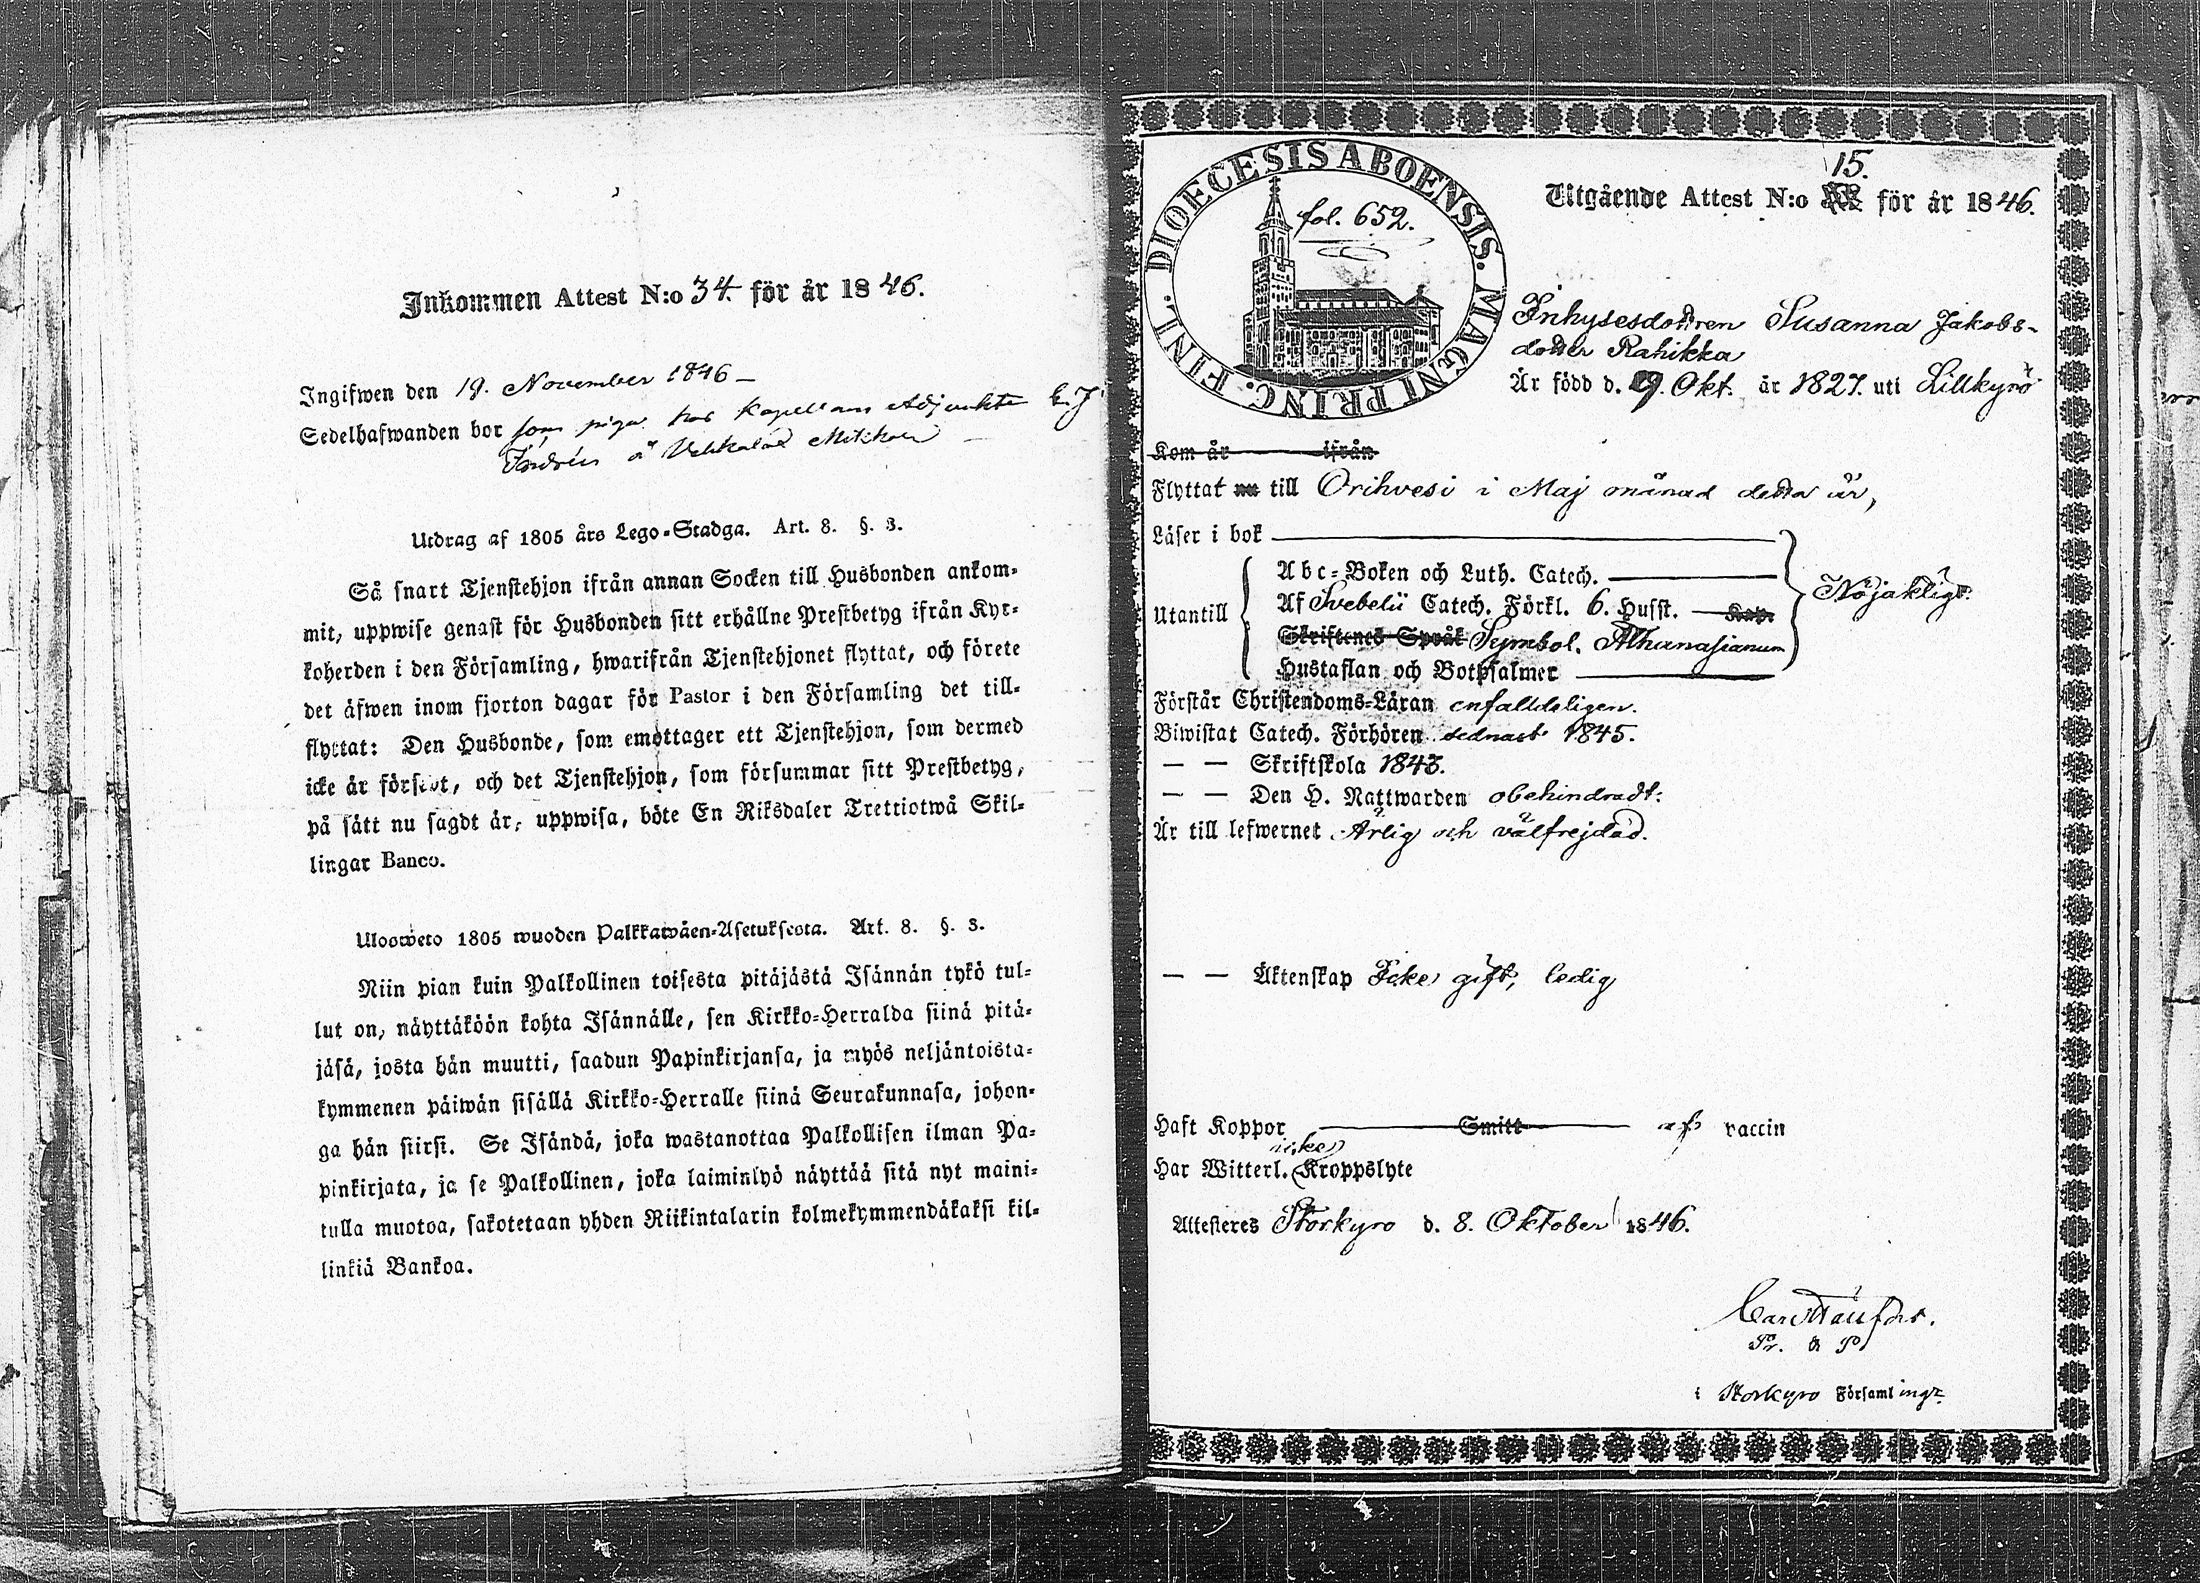 Inkommen Attest N:o 34. för år 1846.
Ingifwen den 19. November 1846 –
Sedelhafwanden bor som piga hos Kapellans Adjunkten
å Mikkola
Utdrag af 1805 års Lego-Stadga. Art. 8. §. 3.
Så snart Tjenstehjon ifrån annan Socken till Husbonden ankom-
mit, uppwise genast för Husbonden sitt erhållne Prestbetyg ifrån Kyr-
koherden i den Församling, hwarifrån Tjenstehjonet flyttat, och förete
det äfwen inom fjorton dagar för Pastor i den Församling det till-
flyttat: Den Husbonde, som emottager ett Tjenstehjon, som dermed
icke är försedt, och det Tjenstehjon, som försummar sitt Prestbetyg,
på sätt nu sagdt är, uppwisa, böte En Riksdaler Trettiotwå Skil-
lingar Banco.
Ulosweto 1805 wuoden Palkkawäen-Asetuksesta. Art. 8. §. 3.
Niin pian kuin Palkollinen toisesta pitäjästä Isännän tykö tul-
lut on, näyttäköön kohta Isännälle, sen Kirkko-Herralda siinä pitä-
jäsä, josta hän muutti, saadun Papinkirjansa, ja myös neljäntoista-
kymmenen päiwän sisällä Kirkko-Herralle siinä Seurakunnasa, johon-
ga hän siirsi. Se Isändä, joka wastanottaa Palkollisen ilman Pa-
pinkirjata, ja se Palkollinen, joka laiminlyö näyttää sitä nyt maini-
tulla muotoa, sakotetaan yhden Riikintalarin kolmekymmendäkaksi kil-
linkiä Bankoa.
DIOECESIS ABOENSIS. MAGNI PRINC. FINL.
fol. 652.
15.
Utgående Attest N:o för år 1846.
Inhysesdottren Susanna Jakobs-
dotter Rahikka
Är född d. 9. Okt. år 1827. uti Lillkyrö
Kom år ifrån
Flyttat nu till Orihvesi i Maj månad detta år,
Läser i bok
Abc-Boken och Luth. Catech.
Utantill
Af Svebelii Catech. Förkl. 6. Husst. Kap.
Nöjaktligt.
Skriftenes Språk Symbol. Athanasianum
Hustaflan och Botpsalmer
Förstår Christendoms-Läran enfalldeligen.
Biwistat Catech. Förhören sednast 1845.
— — Skriftskola 1843.
— — Den H. Nattwarden obehindradt.
Är till lefwernet Ärlig och välfrejdad.
— — Äktenskap Icke gift, ledig
Haft Koppor Smitt af vaccin
icke
Har Witterl. Kroppslyte
Attesteres Storkyro d. 8. Oktober 1846.
i Storkyro Församling.